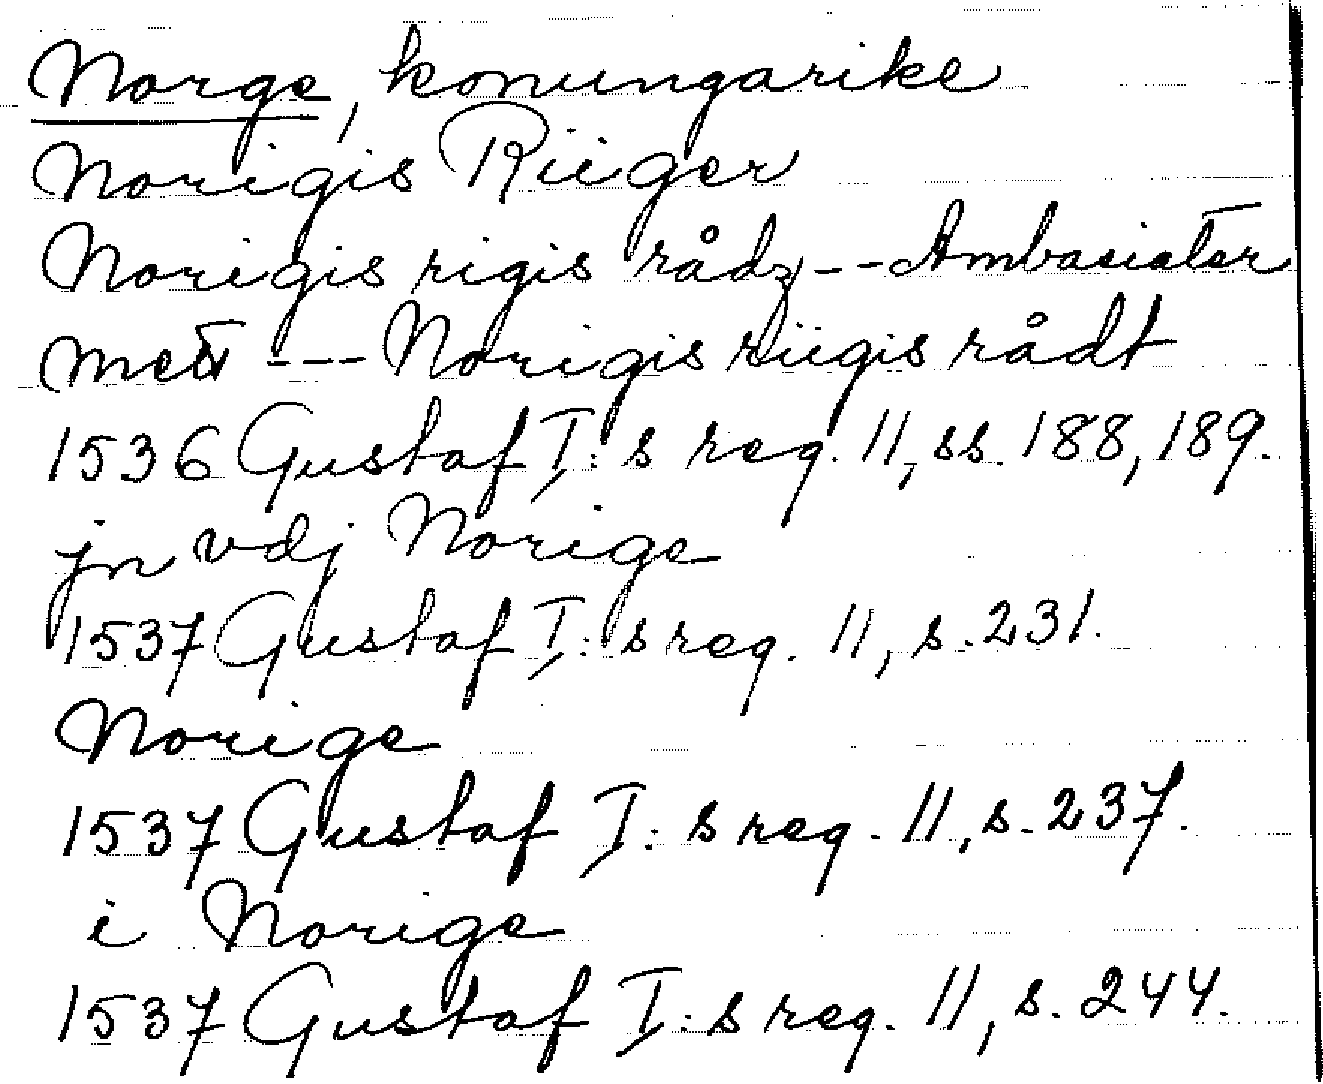 Norge, konungarike
Norigis Riiger
Norigis rigis rådz --- Ambasiater
mett --- Norigis riigis rådt
1536 Gustaf I:s reg. 11, ss. 188, 189.
jn vdj Norige
1537 Gustaf I:s reg. 11, s. 231.
Norige
1537 Gustaf I:s reg. 11, s. 237.
i Norige
1537 Gustaf I:s reg. 11, s. 244.